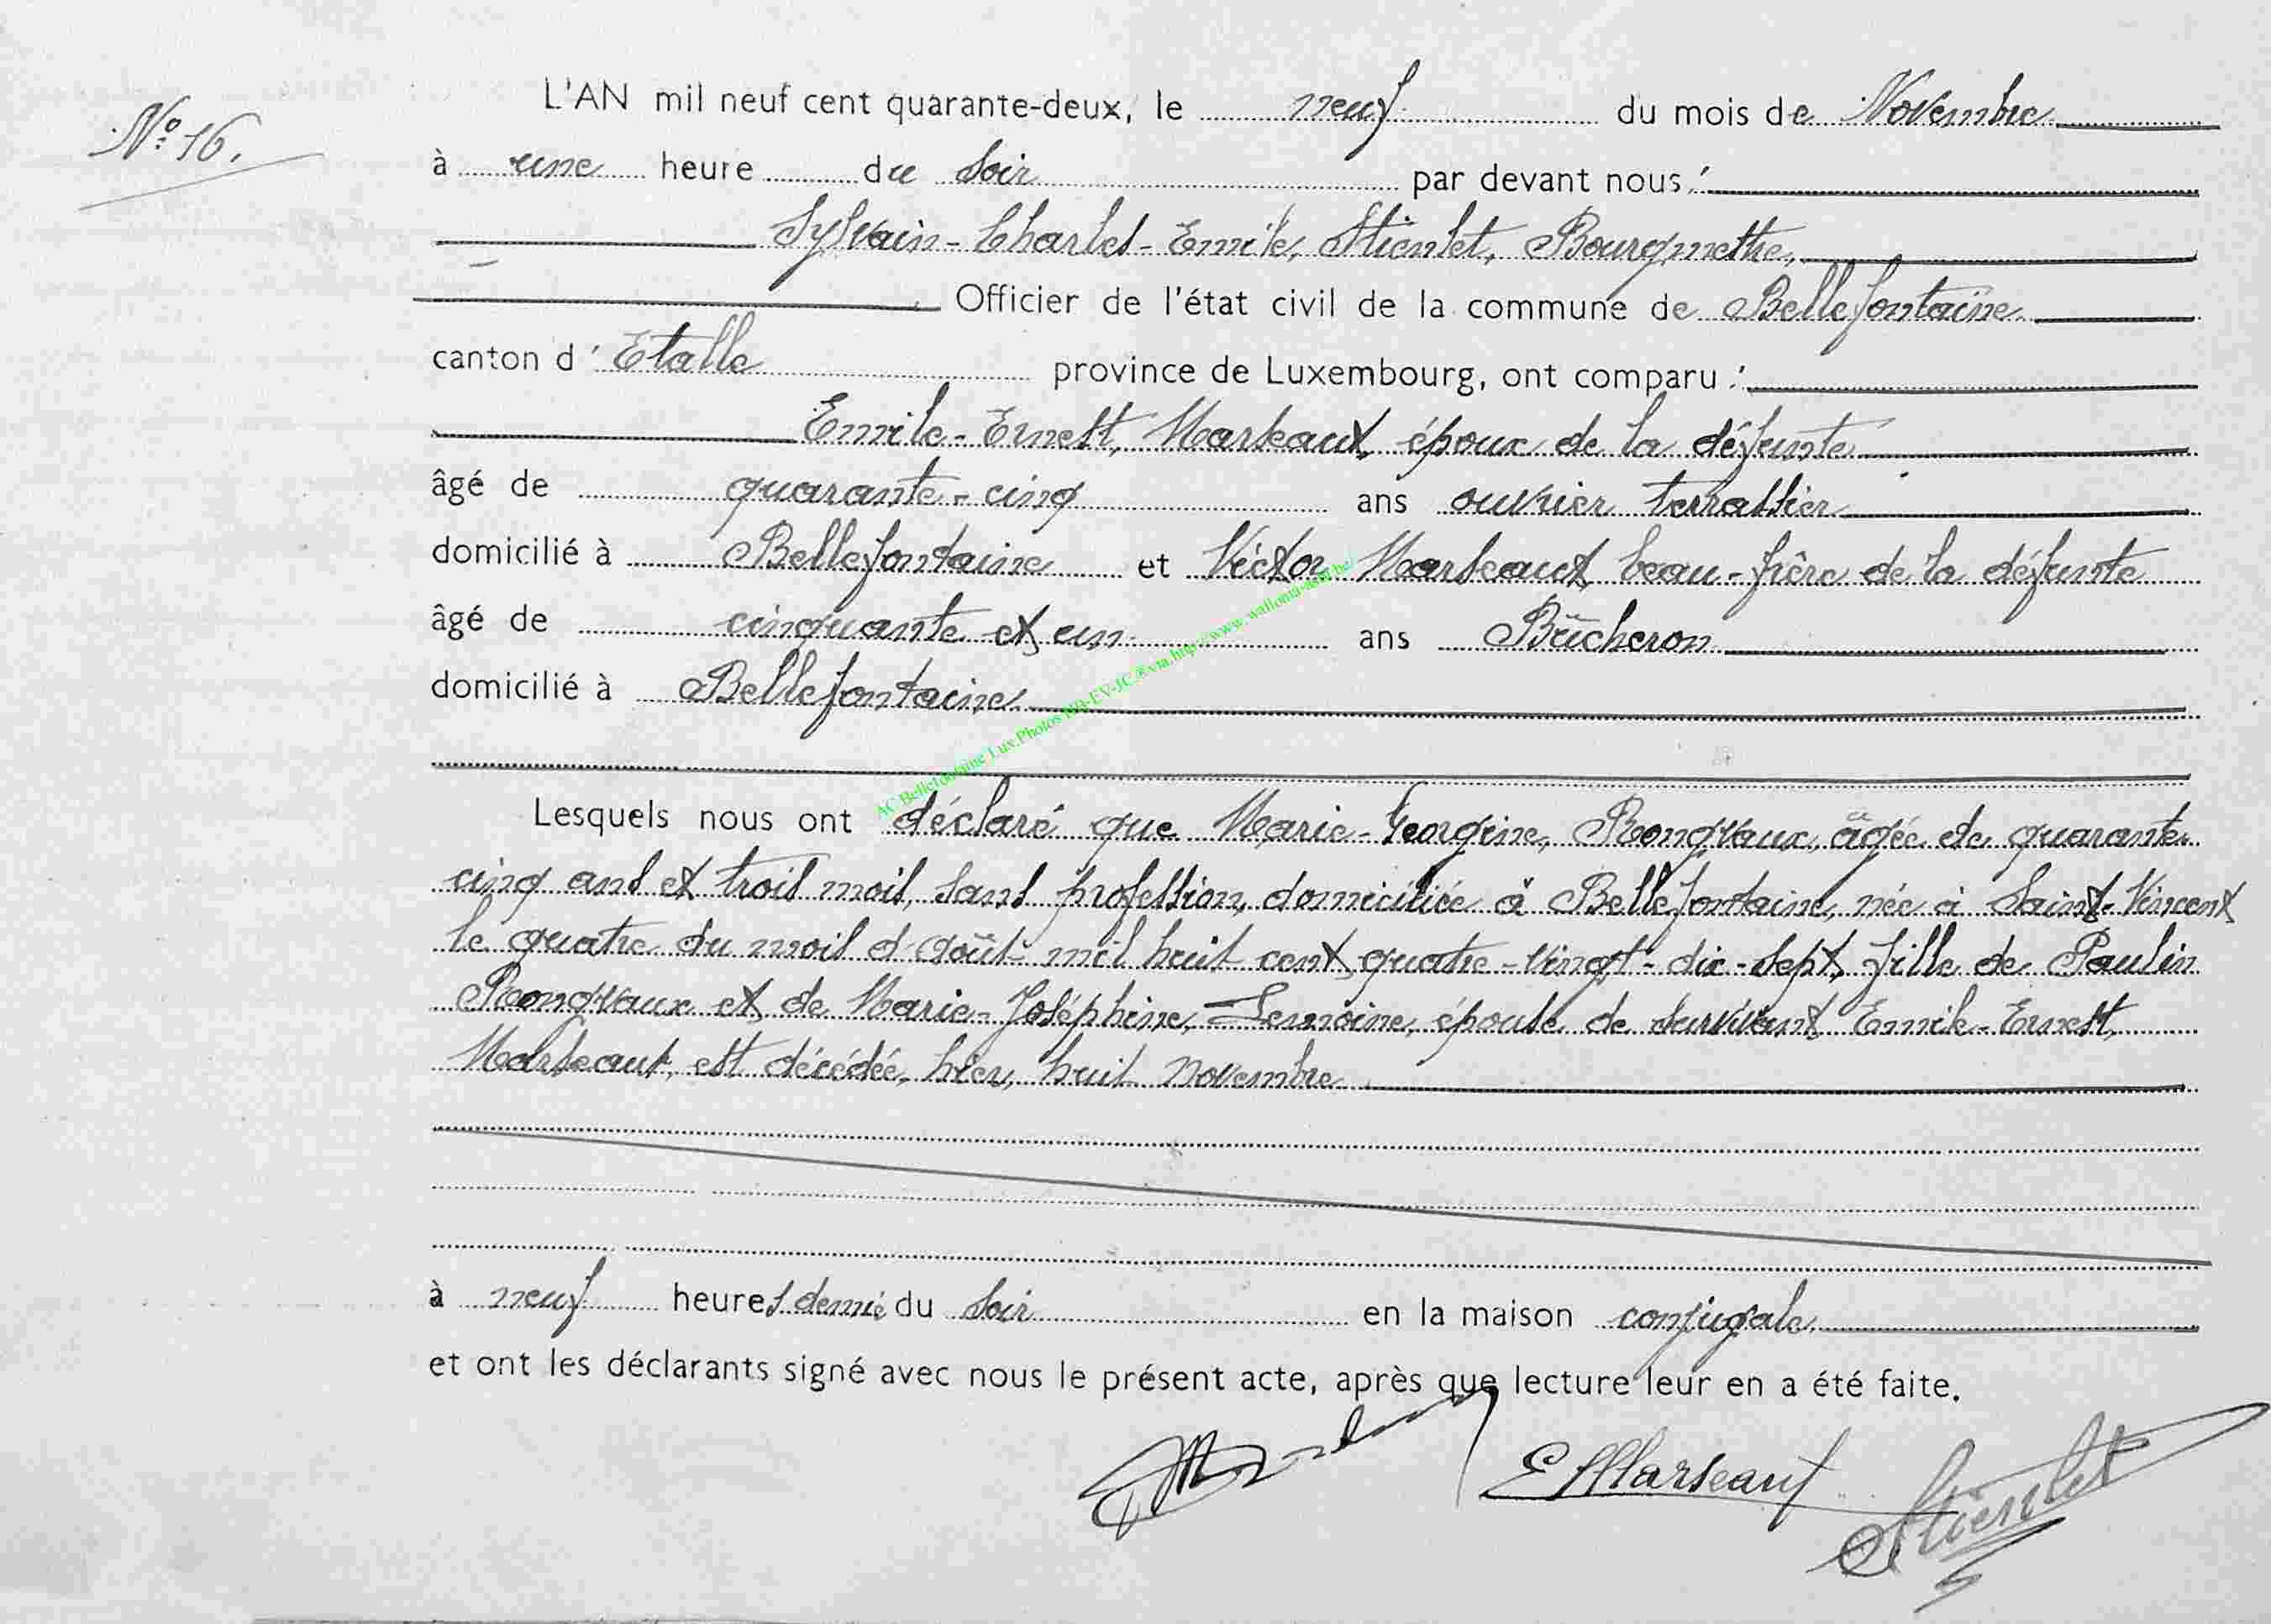 N° 16.
L'AN mil neuf cent quarante-deux, le neuf du mois de Novembre
à une heure du soir par devant nous :
Sylvain - Charles - Emile, Stienlet, Bourgmestre,
Officier de l'état civil de la commune de Bellefontaine
canton d' Etalle province de Luxembourg, ont comparu :
Emile - Ernest, Marseaut, époux de la défunte
âgé de quarante - cinq ans ouvrier terrassier
domicilié à Bellefontaine et Victor Marseaut, beau - frère de la défunte
âgé de cinquante et un ans Bûcheron
domicilié à Bellefontaine
AC Bellefontaine Lux.Photos via http://www.wallonia-asbl.be/
Lesquels nous ont déclaré que Marie - Georgine, Rongvaux, âgée de quarante-
cinq ans et trois mois, sans profession, domiciliée à Bellefontaine, née à Saint - Vincent
le quatre du mois d'août mil huit cent quatre - vingt - dix - sept, fille de Paulin
Rongvaux et de Marie - Joséphine, Lemoine, épouse de survivant Emile - Ernest,
Marseaut, est décédée, hier, huit novembre
à neuf heures demie du soir en la maison conjugale
et ont les déclarants signé avec nous le présent acte, après que lecture leur en a été faite.
E Marseaut
Stienlet